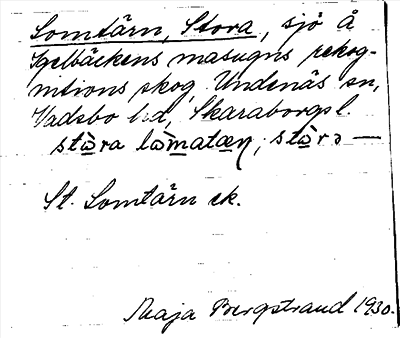 Lomtärn, Stora, sjö å
Igelbäckens masugns rekog-
nitions skog, Undenäs sn,
Vadsbo hd, Skaraborgs l.
stòra lòmatæn; stòrə —
St. Lomtärn ek.
Maja Bergstrand 1930.